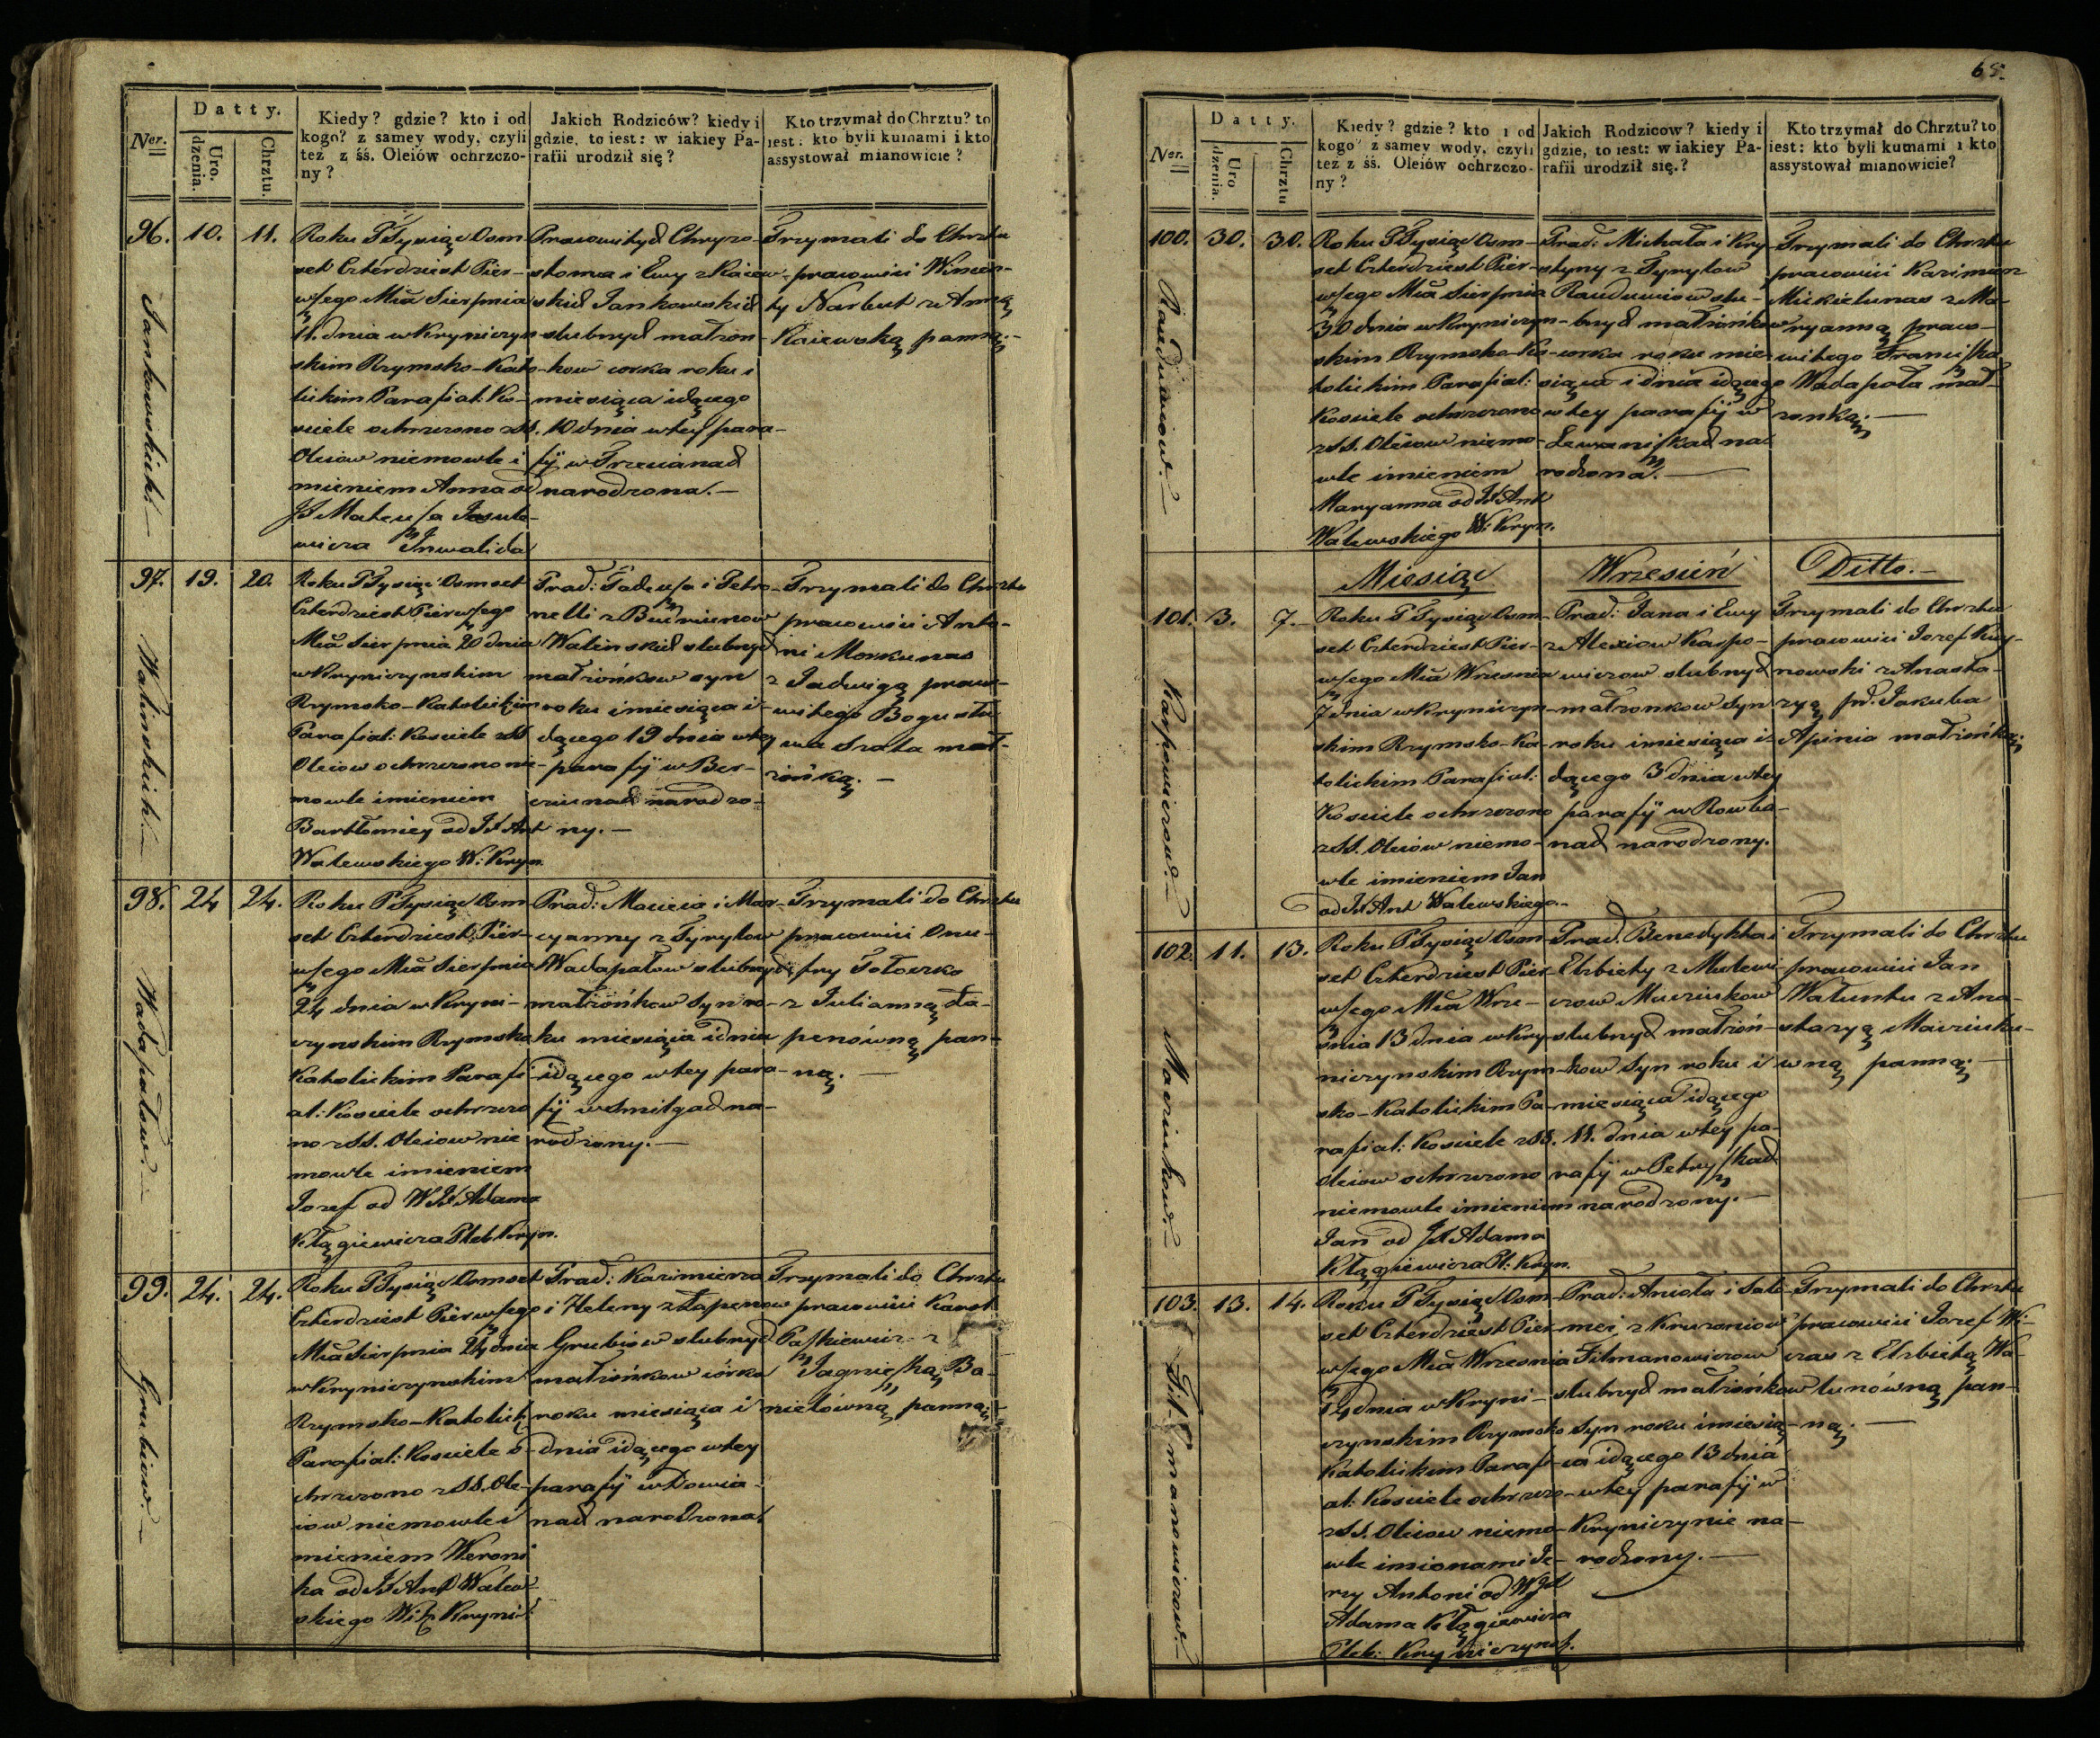 Datty.
Ner.
Uro.
dzenia.
Chrztu.
Kiedy? gdzie? kto i od
kogo? z samey wody, czyli
też z śś. Oleiów ochrzczo-
ny?
Jakich Rodziców? kiedy i
gdzie, to iest: w iakiey Pa-
rafii urodził się?
Kto trzymał do Chrztu? to
iest: kto byli kumami i kto
assystował mianowicie?
96. 10. 11.
Jankowskich.
Roku TTysiąc Osm
set Czterdziest Pier-
wszego Mca Sierpnia
11. dnia w Kryniczyn-
skim Rzymsko-Kato-
lickim Parafial: Ko-
sciele ochrzczono z SS.
Oleiow niemowle i
mieniem Anna od
JX Mateusza
Inwalida
Pracowitych Chryzo-
stoma i Ewy z Kaiew-
skich Jankowskich
slubnych małżon-
kow corka roku i
miesiąca idącego
10 dnia w tey para-
fij w Trzecianach
narodzona.
Trzymali do Chrztu
pracowici Wincen-
ty Narbut z Anną
Kaiewską panną.
97. 19. 20.
Walinskich.
Roku TTysiąc Osmset
Czterdziest Pierwszego
Mca Sierpnia 20 dnia
w Kryniczynskim
Rzymsko-Katolickim
Parafial: Kosciele z SS
Oleiow ochrzczono nie-
mowle imieniem
Bartłomiey od JX Ant
Walewskiego W: Kryn.
Prac: Tadeusza i Petro-
nelli z
Walinskich slubnych
małżonkow syn
roku i miesiąca i-
dącego 19 dnia w tey
parafij w Ber-
żunach narodzo-
ny.
Trzymali do Chrztu
pracowici Anto-
ni Morkunas
z Jadwigą praco-
witego Bogusła
wa Srata mał-
żonką.
98. 24 24.
Wadapałow.
Roku TTysiąc Osm
set Czterdziest Pier-
wszego Mca Sierpnia
24 dnia w Kryni-
czynskim Rzymsko
Katolickim Parafi-
al: Kosciele ochrzczo
no z SS. Oleiow nie
mowle imieniem
Jozef od WJX Adama
Kłągiewicza Pleb Kryn.
Prac: Macieia i Mar-
cyanny z Tyrylow
Wadapałow slubnych
małżonkow Syn ro-
ku miesiąca i dnia
idącego w tey para-
fij w Smilgach na-
rodzony.
Trzymali do Chrztu
pracowici Onu-
fry Tołoczko
z Julianną Ła-
penówną pan-
ną.
99. 24. 24.
Grubiow.
Roku TTysiąc Osmset
Czterdziest Pierwszego
Mca Sierpnia 24 dnia
w Kryniczynskim
Rzymsko-Katolick:
Parafial: Kosciele o-
chrzczono z SS. Ole-
iow niemowle i
mieniem Weroni
ka od JX Ant Walew-
skiego Wik Krynic
Prac: Kazimierza
i Heleny z Łapenow
Grubiow slubnych
małżonkow córka
roku miesiąca i
dnia idącego w tey
parafij w Dowia-
nach narodzona.
Trzymali do Chrztu
pracowici Karol
Paszkiewicz z
Jagnieszką Ba-
nielówną panną.
68.
Datty.
Ner.
Uro
dzenia.
Chrztu
Kiedy? gdzie? kto i od
kogo? z samey wody, czyli
też z śś. Oleiów ochrzczo-
ny?
Jakich Rodzicow? kiedy i
gdzie, to iest: w iakiey Pa-
rafii urodził się.?
Kto trzymał do Chrztu? to
iest: kto byli kumami i kto
assystował mianowicie?
100. 30. 30.
Rauduwiow.
Roku TTysiąc Osm-
set Czterdziest Pier-
wszego Mca Sierpnia
30 dnia w Krynicyn-
skim Rzymsko-Ka-
tolickim Parafial:
Kosciele ochrzczono
z SS. Oleiow niemo-
wle imieniem
Maryanna od JX Ant
Walewskiego W: Kryn.
Prac: Michała i Kry-
styny z Tyrylow
Rauduwiow slu-
bnych małżonkow
corka roku mie-
siąca i dnia idącego
w tey parafij w
Lewaniszkach na
rodzona.
Trzymali do Chrztu
pracowici Kazimierz
Mickielunas z Ma-
ryanną praco-
witego Franciszka
Wadapała mał-
zonką.
Miesiąc Wrzesień Ditto.
101. 3. 7.
Karpowiczow.
Roku TTysiąc Osm-
set Czterdziest Pier-
wszego Mca Wrzesnia
7 dnia w Kryniczyn-
skim Rzymsko-Ka-
tolickim Parafial:
Kosciele ochrzczono
z SS. Oleiow niemo-
wle imieniem Jan
od JX Ant Walewskiego.
Prac: Jana i Ewy
z Alexiow Karpo-
wiczow slubnych
małzonkow Syn
roku i miesiąca i-
dącego 3 dnia w tey
parafij w Rowba-
nach narodzony.
Trzymali do Chrztu
pracowici Jozef Kuy-
nowski z Anasta-
zyą pr. Jakuba
Apinia małżonką.
102. 11. 13.
Maciukow.
Roku TTysiąc Osm
set Czterdziest Pier-
wszego Mca Wrze-
snia 13 dnia w Kry-
niczynskim Rzym-
sko-Katolickim Pa-
rafial: Kosciele z SS.
Oleiow ochrzczono
niemowle imieniem
Jan od JX Adama
Kłągiewicza Pl: Kryn.
Prac. Benedykta i
Elzbiety z Mulewi-
czow Maciukow
slubnych małżon-
kow Syn roku i
miesiąca idącego
11. dnia w tey pa-
rafij w Petryszkach
narodzony.
Trzymali do Chrztu
pracowici Jan
Walunta z Ana-
stazyą Maciuku-
wną panną.
103. 13. 14.
Tilmanowiczow.
Roku TTysiąc Osm-
set Czterdziest Pier-
wszego Mca Wrzesnia
14 dnia w Kryni-
czynskim Rzymsko
Katolickim Parafi-
al: Kosciele ochrzczo-
z SS. Oleiow niemo-
wle imionami Je-
rzy Antoni od WJX
Adama Kłągiewicza
Pleb: Krynicyńs.
Prac: Anioła i Salo-
mei z
Tilmanowiczow
slubnych małżonkow
Syn roku i miesią-
ca idącego 13 dnia
w tey parafij w
Krynicynie na-
rodzony.
Trzymali do Chrztu
pracowici Jozef Wi-
czas z Elzbietą Wa-
lunówną pan-
ną.